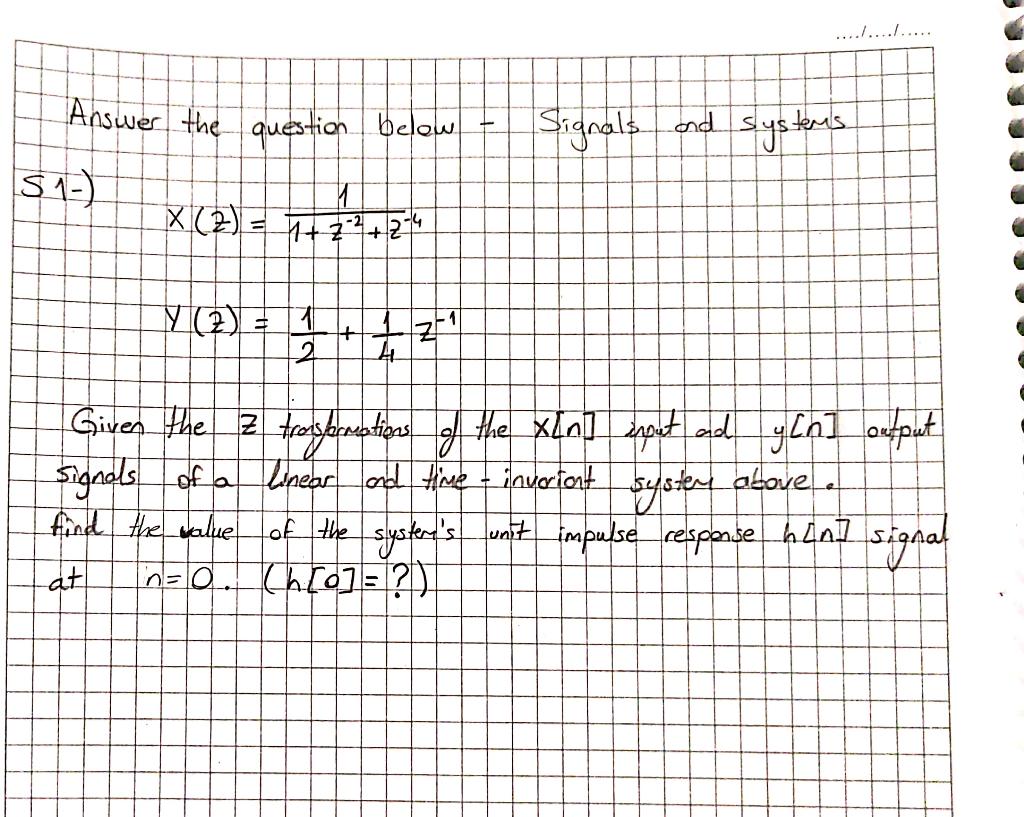 ..../..../.....
Answer the question below - Signals and systems
S1-)
X(Z) = 1 / (1 + Z^-2 + Z^-4)
Y(Z) = 1/2 + 1/4 Z^-1
Given the Z transformations of the X[n] input ad y[n] output
signals of a linear and time-invariant system above.
find the value of the system's unit impulse response h[n] signal
at n=0. (h[0]=?)